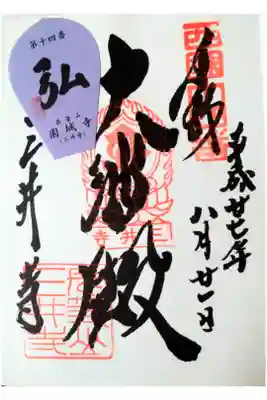 奉拝
平成廿七年
八月廿一日
大悲殿
三井寺
第十四番
弘
長等山
園城寺
(三井寺)